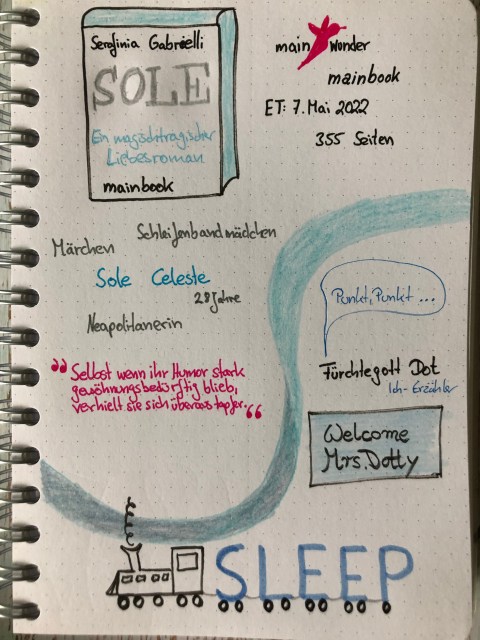 Serafinia Gabrielli
SOLE
Ein magischtragischer
Liebesroman
mainbook
main Wunder
mainbook
ET: 7. Mai 2022
355 Seiten
Schleifenbandmädchen
Märchen
Sole Celeste
28 Jahre
Neapolitanerin
„Selbst wenn ihr Humor stark
gewöhnungsbedürftig blieb,
verhielt sie sich überaus tapfer.“
Punkt, Punkt ...
Fürchtegott Dot
Ich-Erzähler
Welcome
Mrs. Dotty
SLEEP